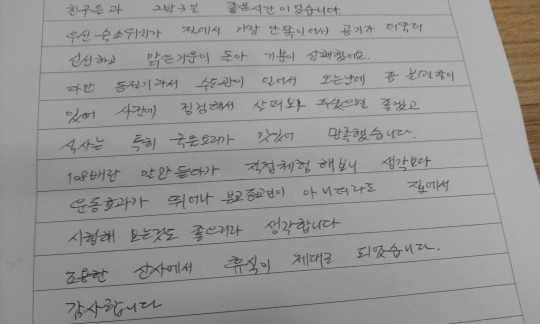 친구들과 2박3일 좋은시간이 였습니다
우선 숙소위치가 절에서 가장 안쪽이여서 공기가 더욱더
신선하고 맑은기운이 돌아 기분이 상쾌했어요.
다만 동절기라서 수도관이 얼어서 오는날에 좀 불편함이
있어 사전에 점검해서 살펴봐 주셨으면 좋겠고
식사는 특히 국은요리가 맛있어 만족했습니다.
108배란 말만 듣다가 직접체험 해보니 생각보다
운동효과가 뛰어나 불교종교인이 아니더라도 집에서
시행해 보는것도 좋으리라 생각합니다
조용한 산사에서 휴식이 제대로 되었습니다.
감사합니다